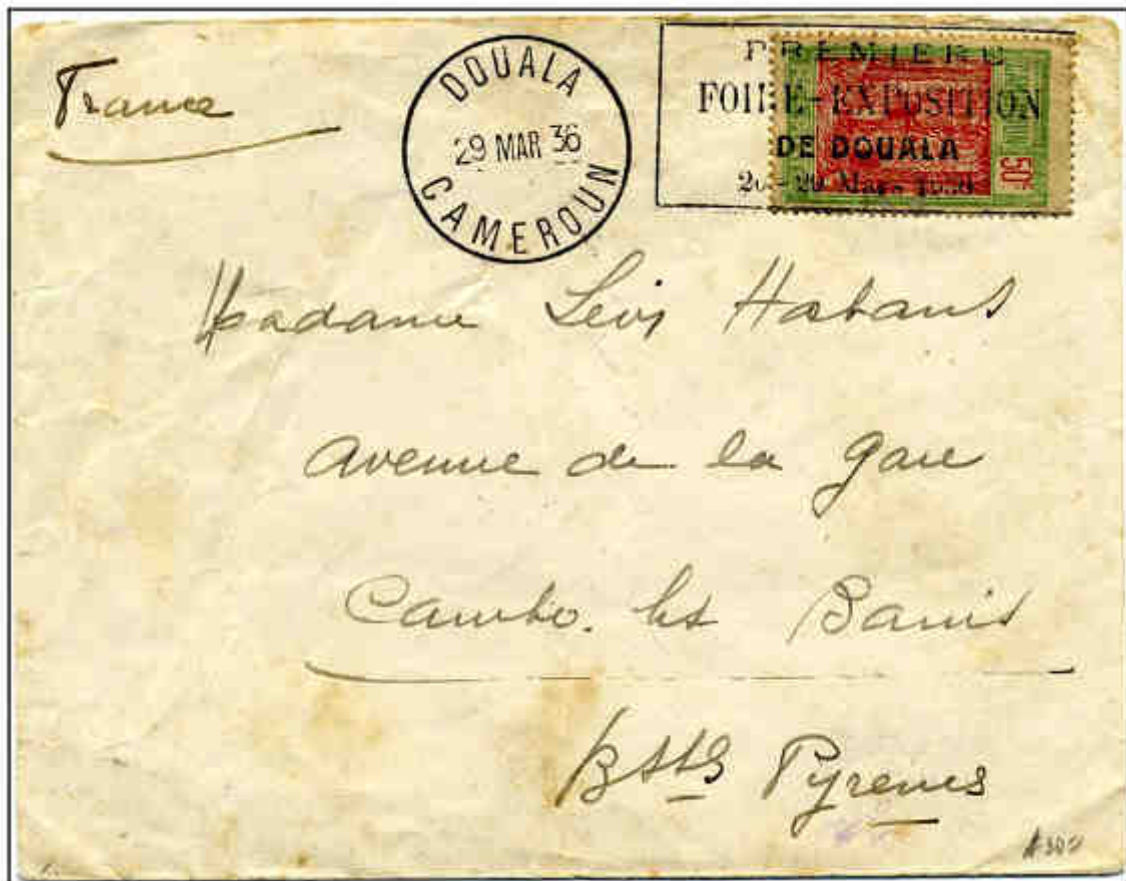 France
DOUALA
29 MAR 36
CAMEROUN
PREMIERE
FOIRE-EXPOSITION
DE DOUALA
29 Mars
50c
Madame Levy
Avenue de la Gare
Cambo. les Bains
Bsses Pyrenees